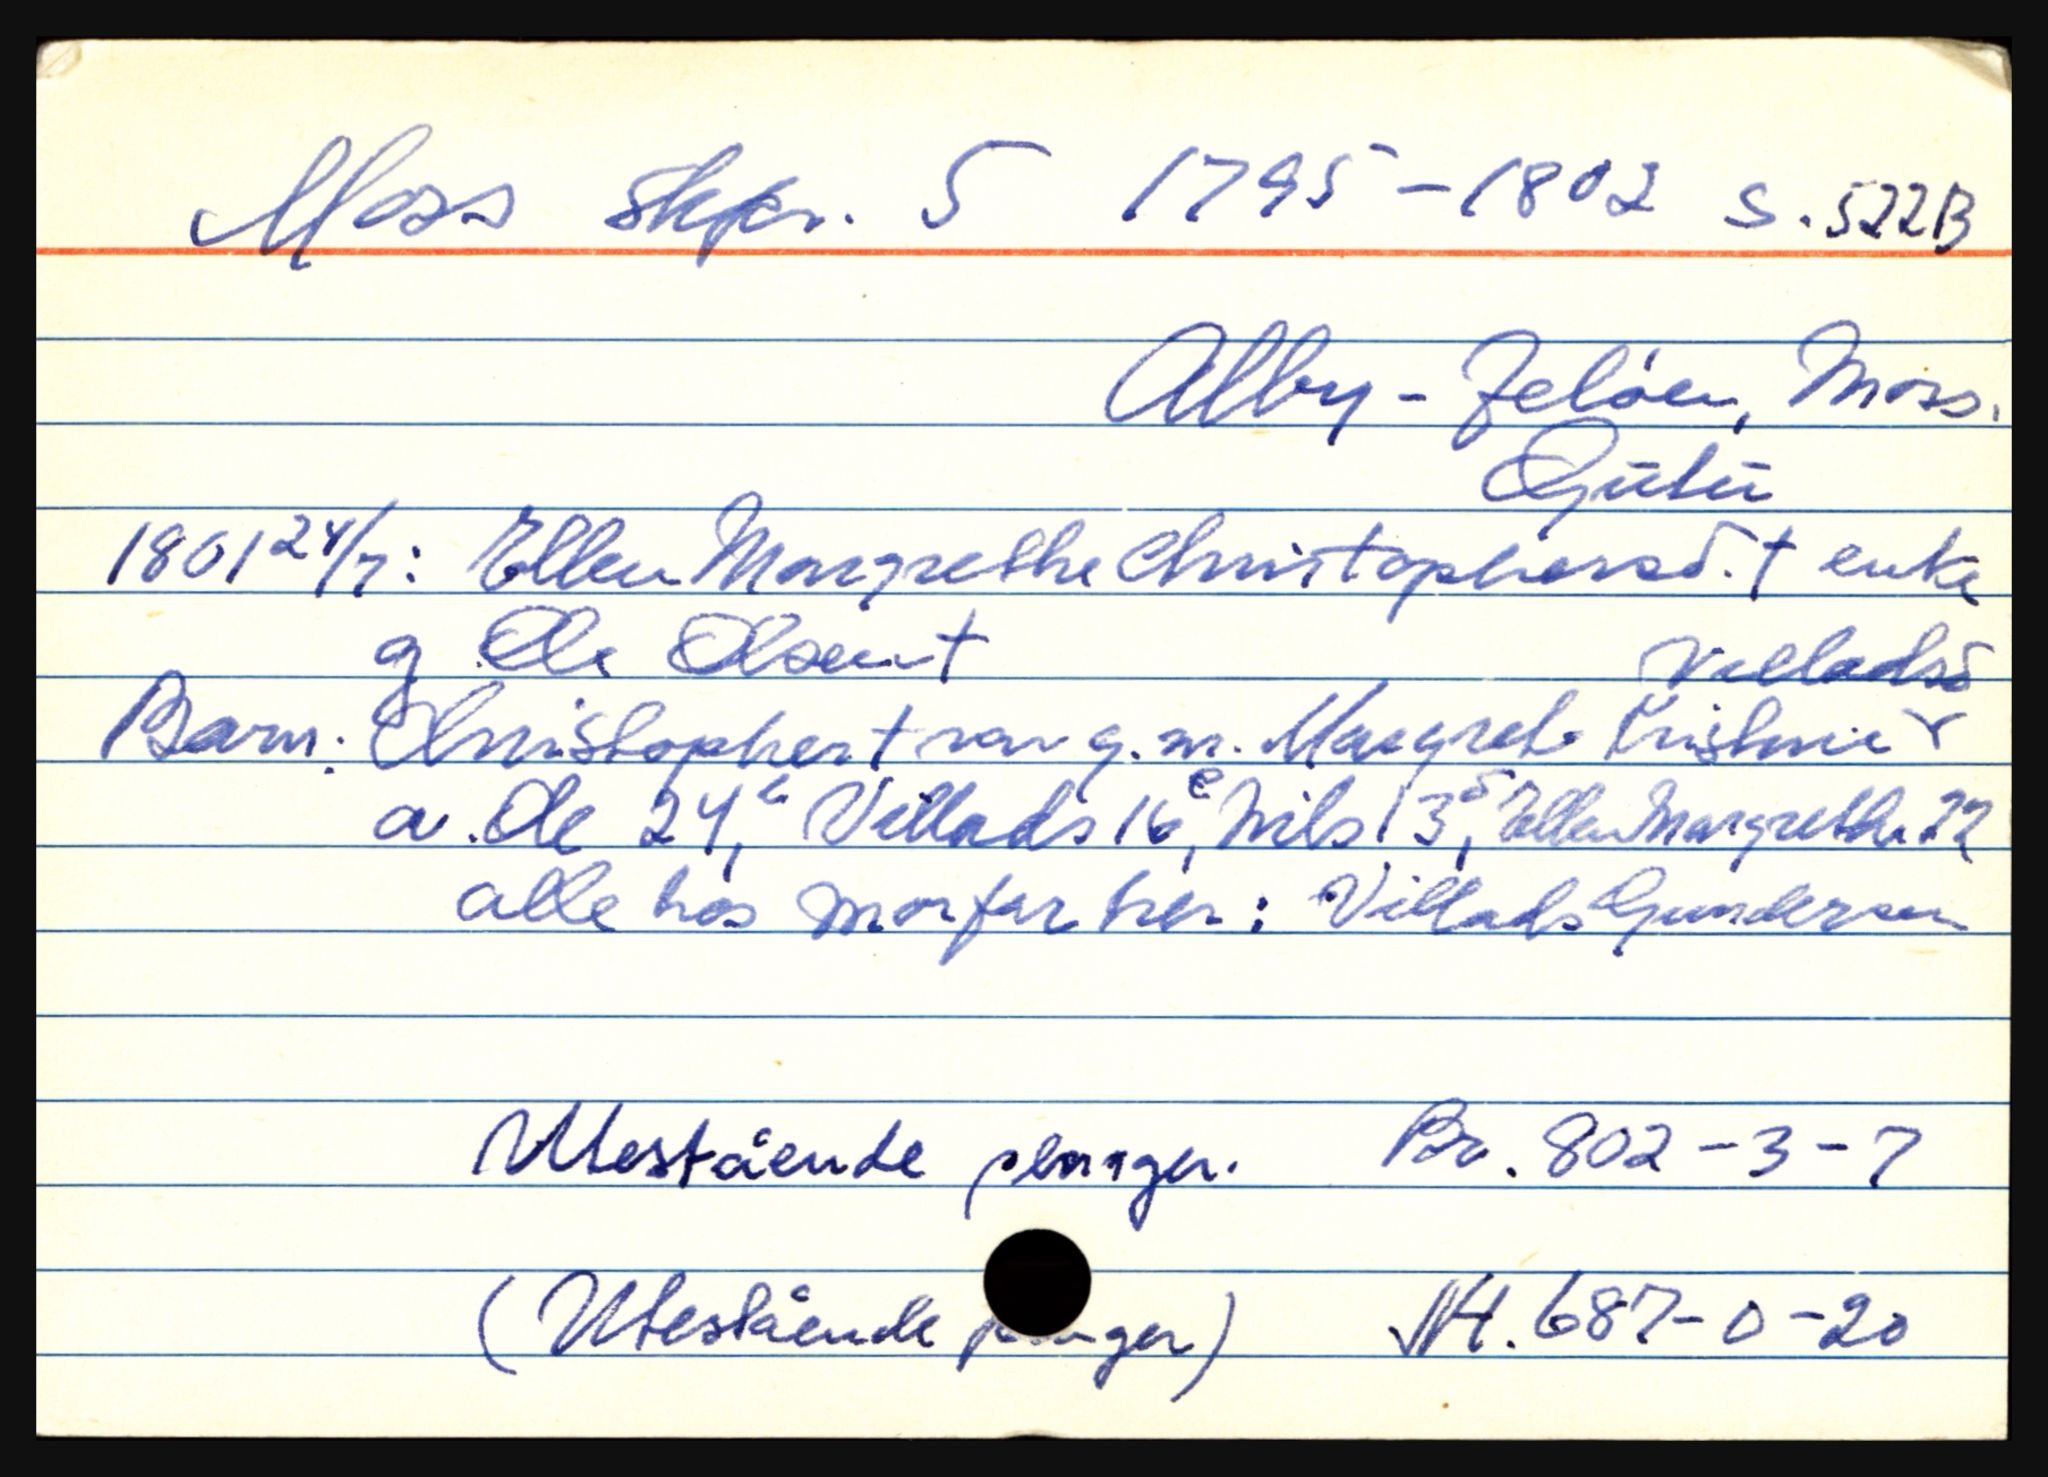 Moss skpr. 5 1795-1802 s. 522B
Alby - Jeløen, Moss.
Gutu
1801 24/7: Ellen Margrethe Christophersd. † enke
g Ole Olsen †
Villadsd
Barn: Christopher † var g. m. Margrete Kristine
a. Ole 24, Villads 16, Nils 13, Ellen Margrethe 22
alle hos morfar her: Villads Gundersen
Utestående penger. Br. 802-3-7
(Utestående penger) NH. 687-0-20